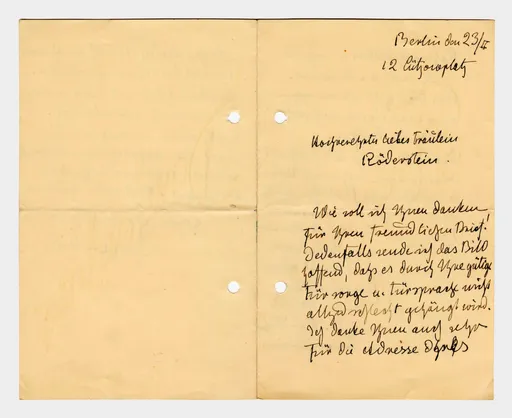 Berlin den 23/II
12 Lützowplatz
Hochverehrtes liebes Fräulein
Röderstein.
Wie soll ich Ihnen danken
für Ihren freundlichen Brief!
Jedenfalls sende ich das Bild
hoffend, dass es durch Ihre gütige
Fürsorge u. Fürsprache nicht
allzu schlecht gehängt wird.
Ich danke Ihnen auch sehr
für die Adresse